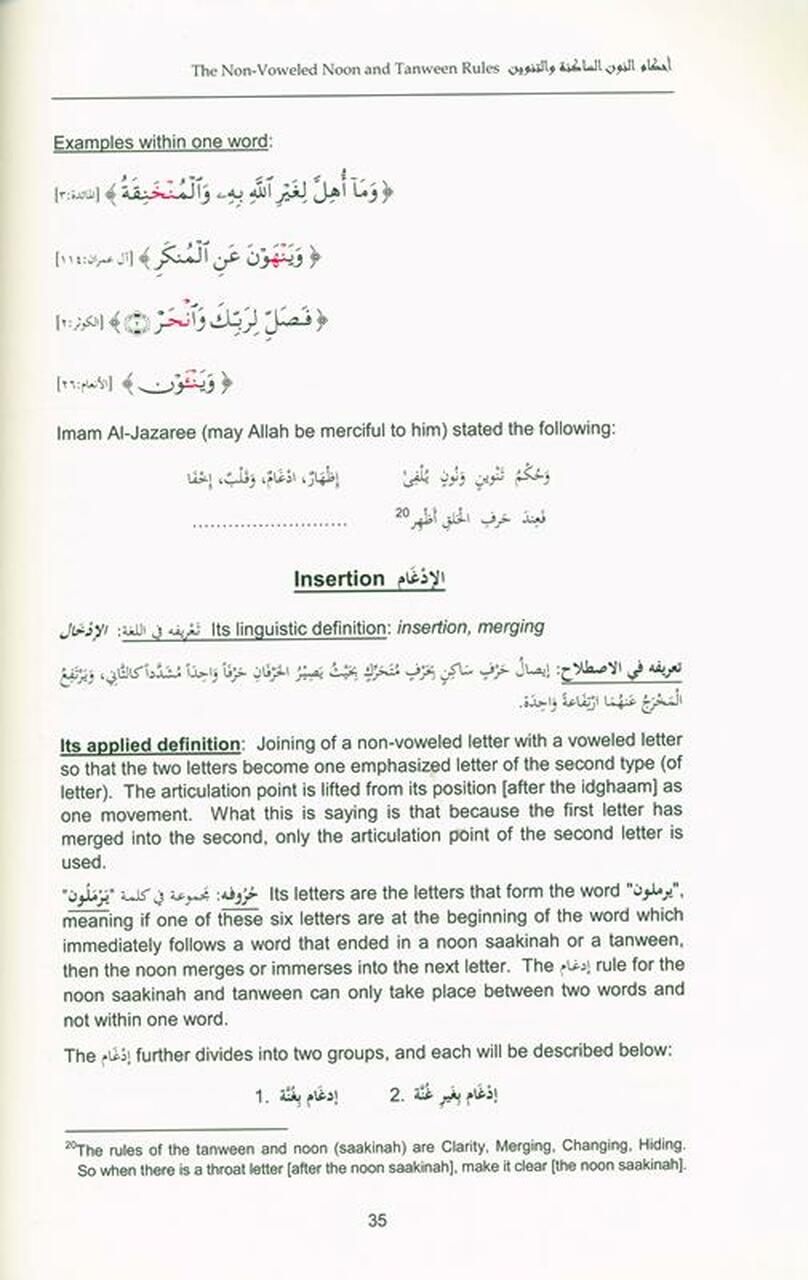 The Non-Voweled Noon and Tanween Rules أحكام النون الساكنة والتنوين
Examples within one word:
﴿ وَمَآ أُهِلَّ لِغَيْرِ ٱللَّهِ بِهِۦ وَٱلْمُنْخَنِقَةُ ﴾ [المائدة:٣]
﴿ وَيَنْهَوْنَ عَنِ ٱلْمُنكَرِ ﴾ [آل عمران:١١٤]
﴿ فَصَلِّ لِرَبِّكَ وَٱنْحَرْ ۝٢ ﴾ [الكوثر:٢]
﴿ وَيَنْـَٔوْنَ ﴾ [الأنعام:٢٦]
Imam Al-Jazaree (may Allah be merciful to him) stated the following:
وَحُكْمُ تَنْوِينٍ وَنُونٍ يُلْفِىْ إِظْهَارٌ، ادْغَامٌ، وَقَلْبٌ، إِخْفَا
فَعِندَ حَرفِ الحَلقِ أَظْهِر20 ..........................
Insertion الإِدْغَام
تَعْرِيفه في اللغة: الإدْخَال Its linguistic definition: insertion, merging
تعريفه في الاصطلاح: إيصالُ حَرْفٍ سَاكِنٍ بِحَرْفٍ مُتَحَرِّكٍ بِحَيْثُ يَصِيْرُ الحَرْفَانِ حَرْفَاً وَاحِدَاً مُشَدَّداً كالثَّاني، وَيَرْتَفِعُ
الْمَخْرَجُ عَنهُمَا ارْتِفَاعةً وَاحِدَة.
Its applied definition: Joining of a non-voweled letter with a voweled letter
so that the two letters become one emphasized letter of the second type (of
letter). The articulation point is lifted from its position [after the idghaam] as
one movement. What this is saying is that because the first letter has
merged into the second, only the articulation point of the second letter is
used.
حُرُوفه: مجموعة في كلمة "يَرْمَلُون" Its letters are the letters that form the word "يرملون",
meaning if one of these six letters are at the beginning of the word which
immediately follows a word that ended in a noon saakinah or a tanween,
then the noon merges or immerses into the next letter. The إدغام rule for the
noon saakinah and tanween can only take place between two words and
not within one word.
The إدْغَام further divides into two groups, and each will be described below:
1. إدغَام بِغُنَّة 2. إدْغَام بِغَيرِ غُنَّة
20The rules of the tanween and noon (saakinah) are Clarity, Merging, Changing, Hiding.
So when there is a throat letter [after the noon saakinah], make it clear [the noon saakinah].
35